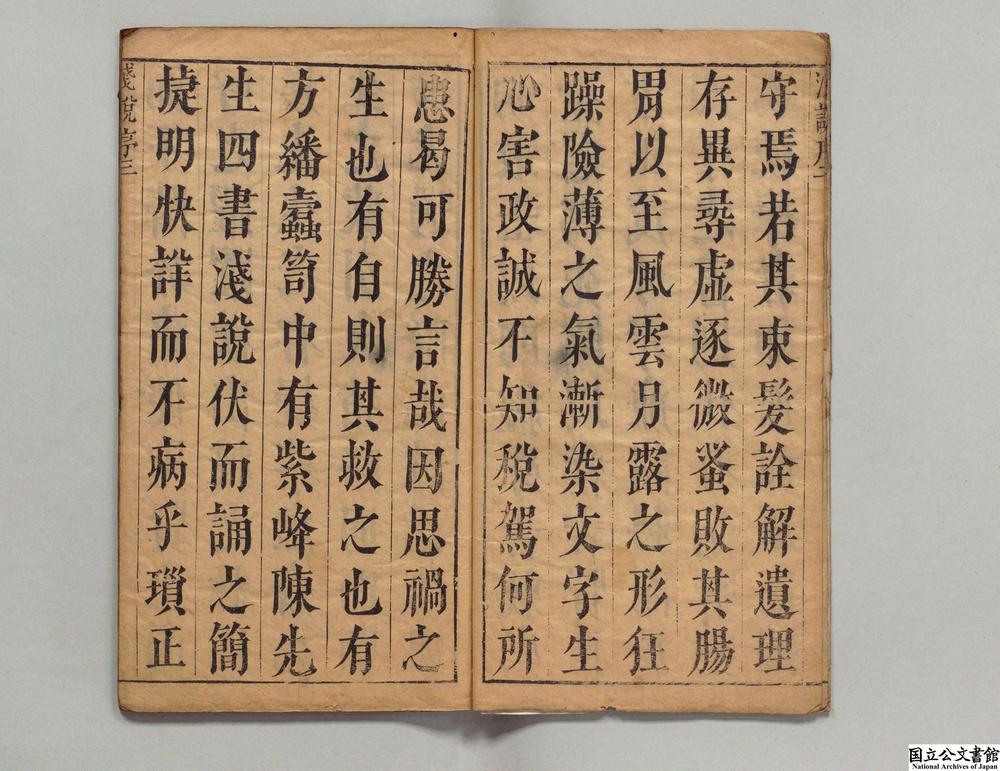 守焉若其束髮詮解遺理
存異尋虛逐微蚤敗其腸
胃以至風雲月露之形狂
躁險薄之氣漸染文字生
心害政誠不知稅駕何所
患曷可勝言哉因思禍之
生也有自則其救之也有
方繙蠧笥中有紫峰陳先
生四書淺說伏而誦之簡
捷明快詳而不病乎瑣正
淺說序三
国立公文書館
National Archives of Japan